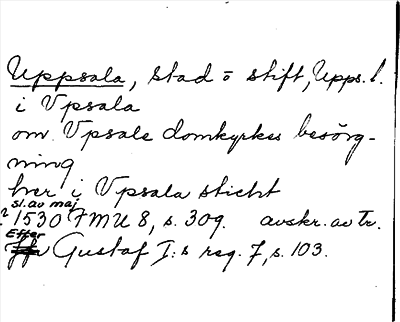 Uppsala, stad o stift, Upps. l.
i Vpsala
om Vpsale domkyrkes besörg-
ning
her i Vpsala sticht
sl. av maj
? 1530 FMU 8, s. 309. avskr. av Tr.
Efter
Gustaf I:s reg. 7, s. 103.